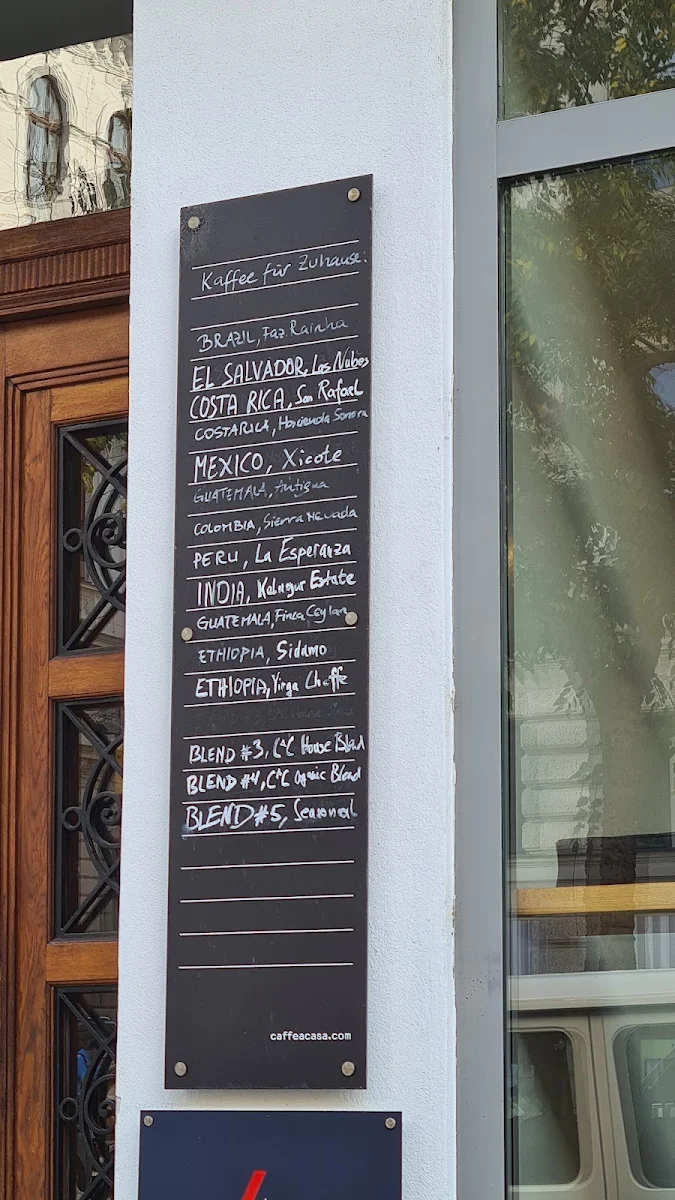 Kaffee für Zuhause:
BRAZIL, Faz. Rainha
EL SALVADOR, Las Nubes
COSTA RICA, San Rafael
COSTA RICA, Hacienda Sonora
MEXICO, Xicote
GUATEMALA, Antigua
COLOMBIA, Sierra Nevada
PERU, La Esperanza
INDIA, Kalngur Estate
GUATEMALA, Finca Ceylan
ETHIOPIA, Sidamo
ETHIOPIA, Yirga Cheffe
BLEND #3, C*C House Blend
BLEND #4, C*C Organic Blend
BLEND #5, Seasonal
caffeacasa.com